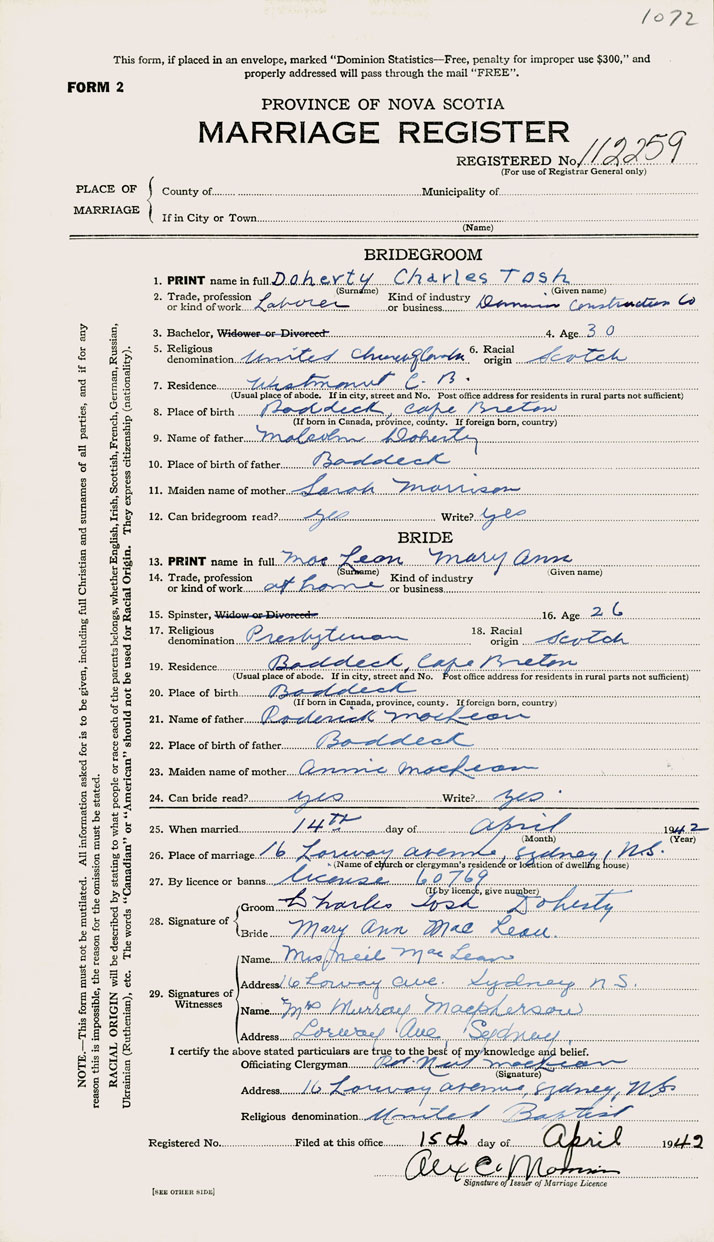 1072
This form, if placed in an envelope, marked "Dominion Statistics—Free, penalty for improper use $300," and
properly addressed will pass through the mail "FREE".
FORM 2
PROVINCE OF NOVA SCOTIA
MARRIAGE REGISTER
REGISTERED No. 112259
(For use of Registrar General only)
PLACE OF MARRIAGE
County of Municipality of
If in City or Town
(Name)
BRIDEGROOM
1. PRINT name in full Doherty Charles Tosh
(Surname) (Given name)
2. Trade, profession or kind of work Laborer Kind of industry or business Dominion Construction Co
3. Bachelor, Widower or Divorced 4. Age 30
5. Religious denomination United Church 6. Racial origin Scotch
7. Residence Westmount C. B.
(Usual place of abode. If in city, street and No. Post office address for residents in rural parts not sufficient)
8. Place of birth Baddeck, Cape Breton
(If born in Canada, province, county. If foreign born, country)
9. Name of father Malcolm Doherty
10. Place of birth of father Baddeck
11. Maiden name of mother Sarah Morrison
12. Can bridegroom read? yes Write? yes
BRIDE
13. PRINT name in full Mac Lean Mary Ann
(Surname) (Given name)
14. Trade, profession or kind of work at home Kind of industry or business
15. Spinster, Widow or Divorced 16. Age 26
17. Religious denomination Presbyterian 18. Racial origin Scotch
19. Residence Baddeck, Cape Breton
(Usual place of abode. If in city, street and No. Post office address for residents in rural parts not sufficient)
20. Place of birth Baddeck
(If born in Canada, province, county. If foreign born, country)
21. Name of father Roderick MacLean
22. Place of birth of father Baddeck
23. Maiden name of mother Annie MacLean
24. Can bride read? yes Write? yes
25. When married 14th day of April 1942
(Month) (Year)
26. Place of marriage 16 Lorway avenue, Sydney, N.S.
(Name of church or clergyman's residence or location of dwelling house)
27. By licence or banns license 60769
(If by licence, give number)
28. Signature of
Groom Charles Tosh Doherty
Bride Mary Ann Mac Lean.
29. Signatures of Witnesses
Name Mrs. Neil MacLean
Address 16 Lorway ave. Sydney N S.
Name Mrs Murray Macpherson
Address Lorway Ave, Sydney.
I certify the above stated particulars are true to the best of my knowledge and belief.
Officiating Clergyman Rev. Neil MacLean
(Signature)
Address 16 Lorway avenue, Sydney, N.S.
Religious denomination United Baptist
Registered No. Filed at this office 15th day of April 1942
Alex C.
Signature of Issuer of Marriage Licence
[SEE OTHER SIDE]
NOTE.—This form must not be mutilated. All information asked for is to be given, including full Christian and surnames of all parties, and if for any
reason this is impossible, the reason for the omission must be stated.
RACIAL ORIGIN will be described by stating to what people or race each of the parents belongs, whether English, Irish, Scottish, French, German, Russian,
Ukrainian (Ruthenian), etc. The words "Canadian" or "American" should not be used for Racial Origin. They express citizenship (nationality).